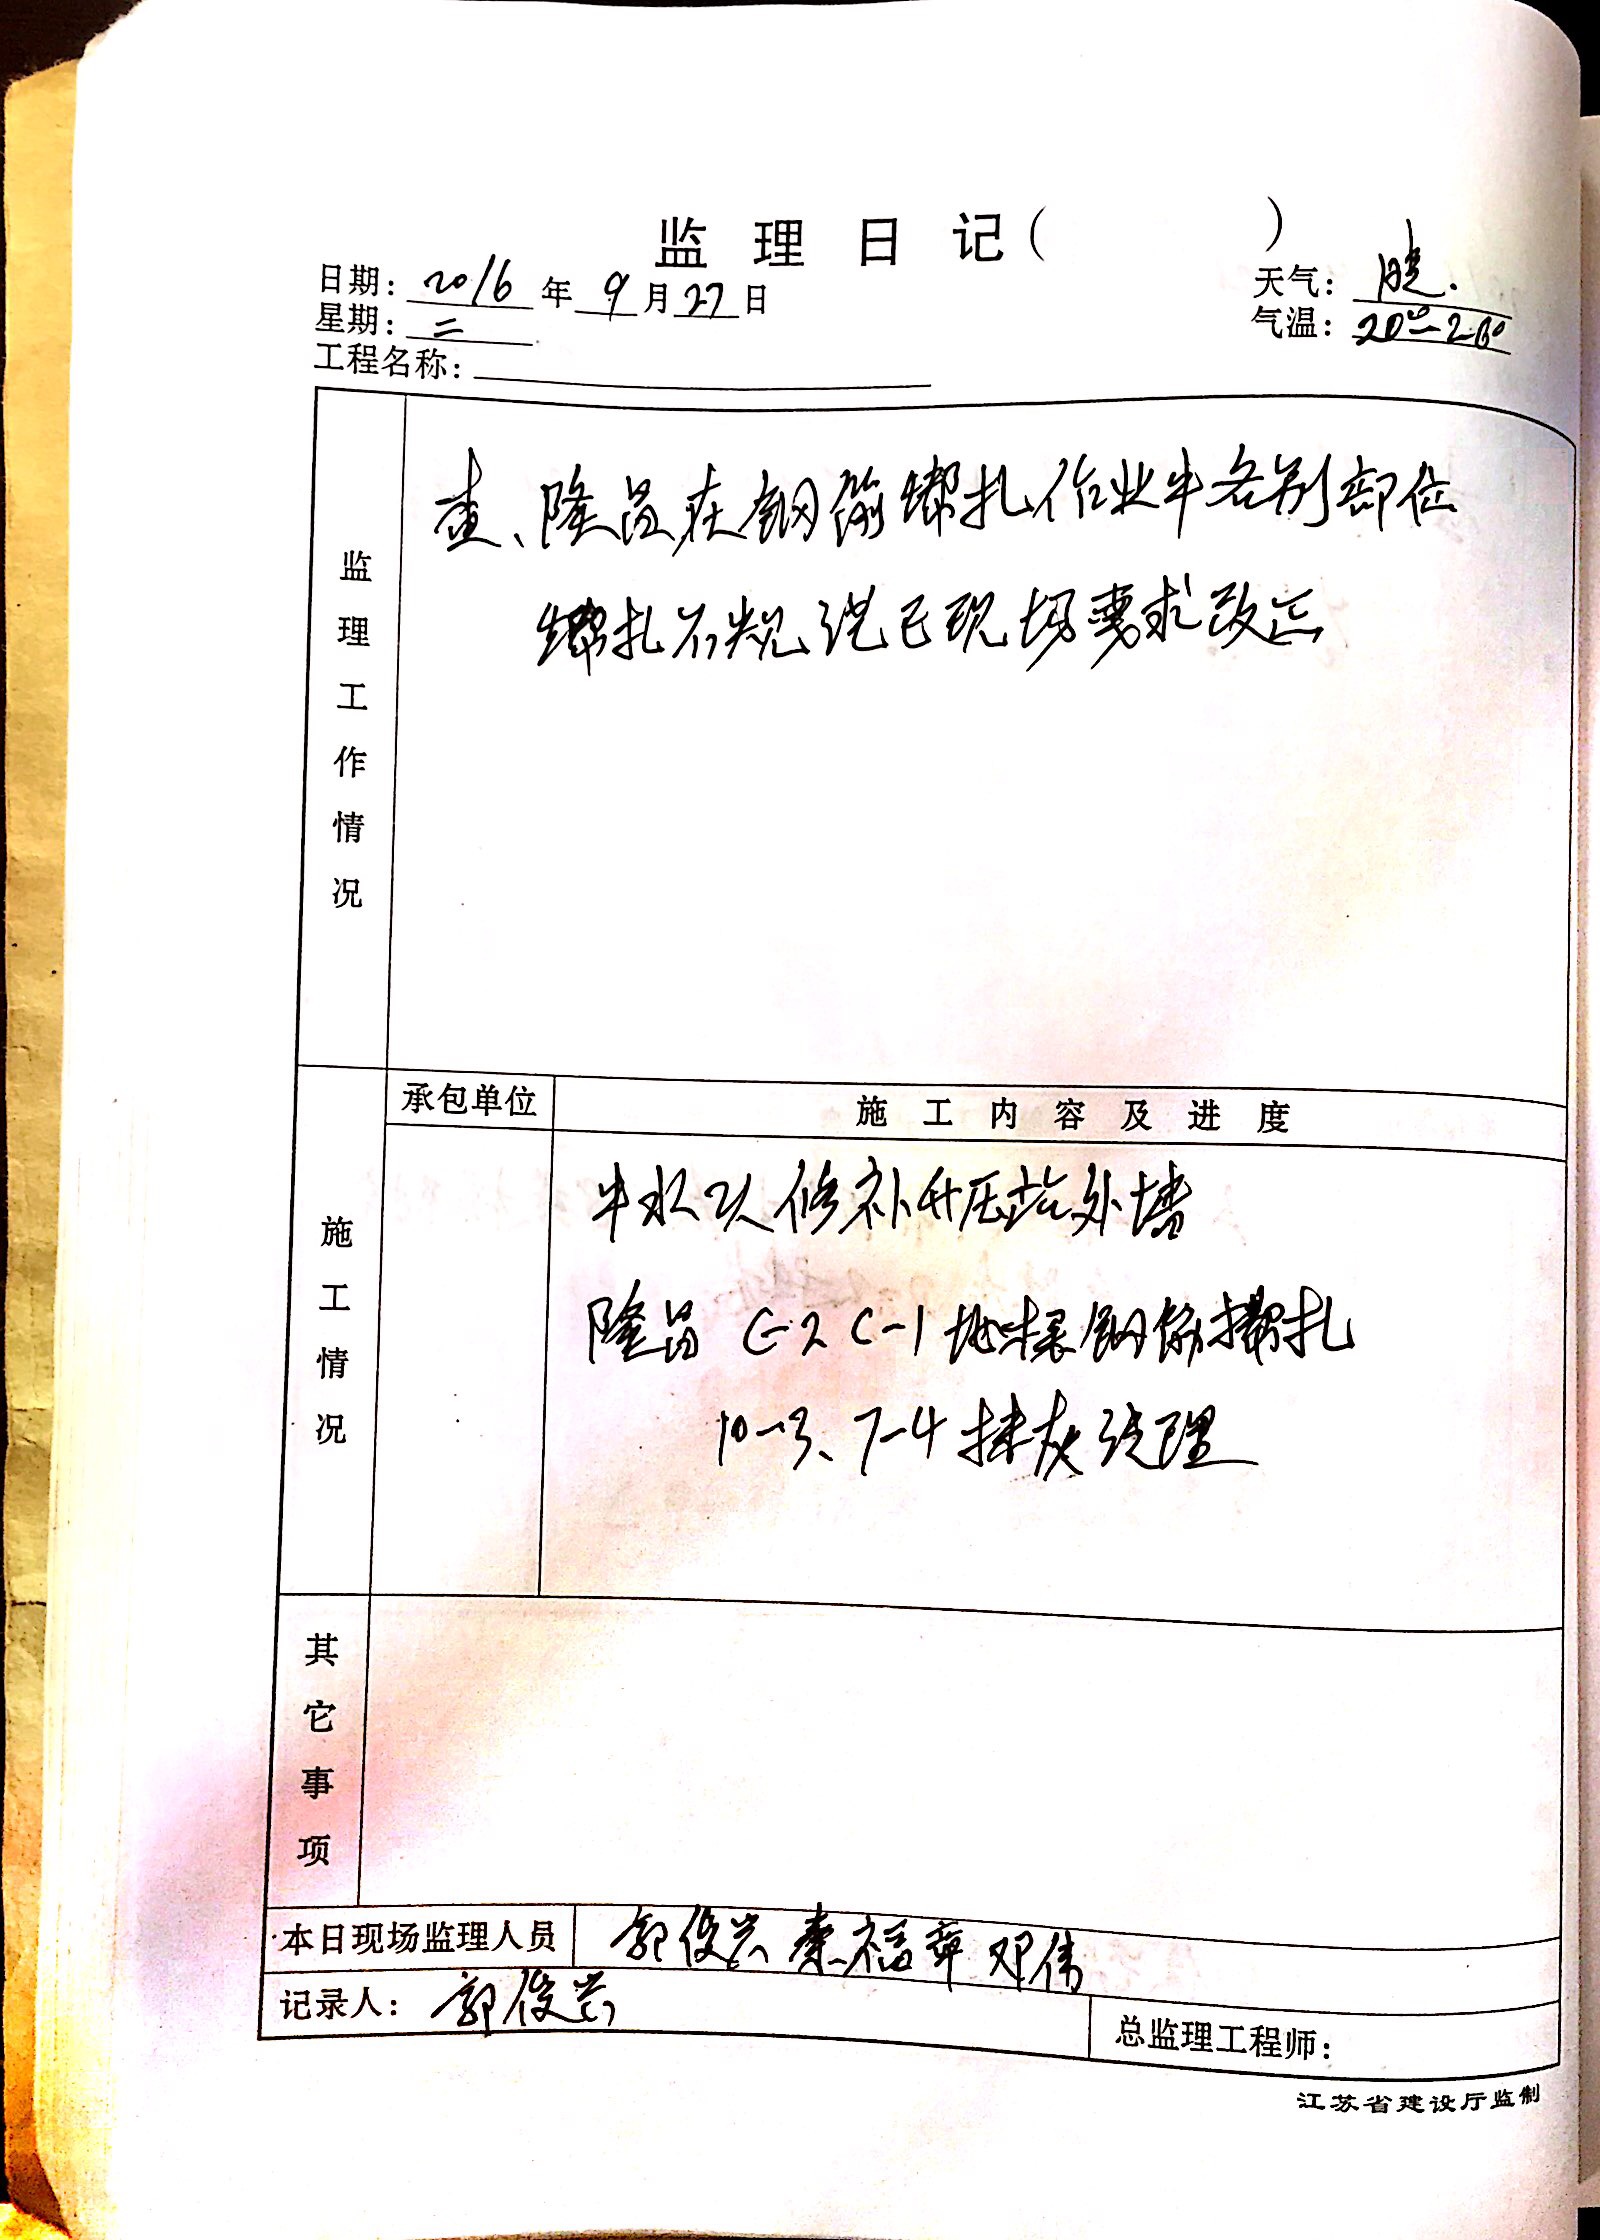 监理日记（ ）
日期：2016年9月27日
天气：晴.
星期：二
气温：20°-26°
工程名称：
监理工作情况
查、隆昌在钢筋绑扎作业中各别部位
绑扎不规范已现场要求改正
承包单位
施工内容及进度
施工情况
中水四 修补升压站外墙
隆昌 C-2 C-1 地梁钢筋绑扎
10-3、7-4 抹灰清理
其它事项
本日现场监理人员
郭俊兴 秦福章 邓伟
记录人：郭俊兴
总监理工程师：
江苏省建设厅监制